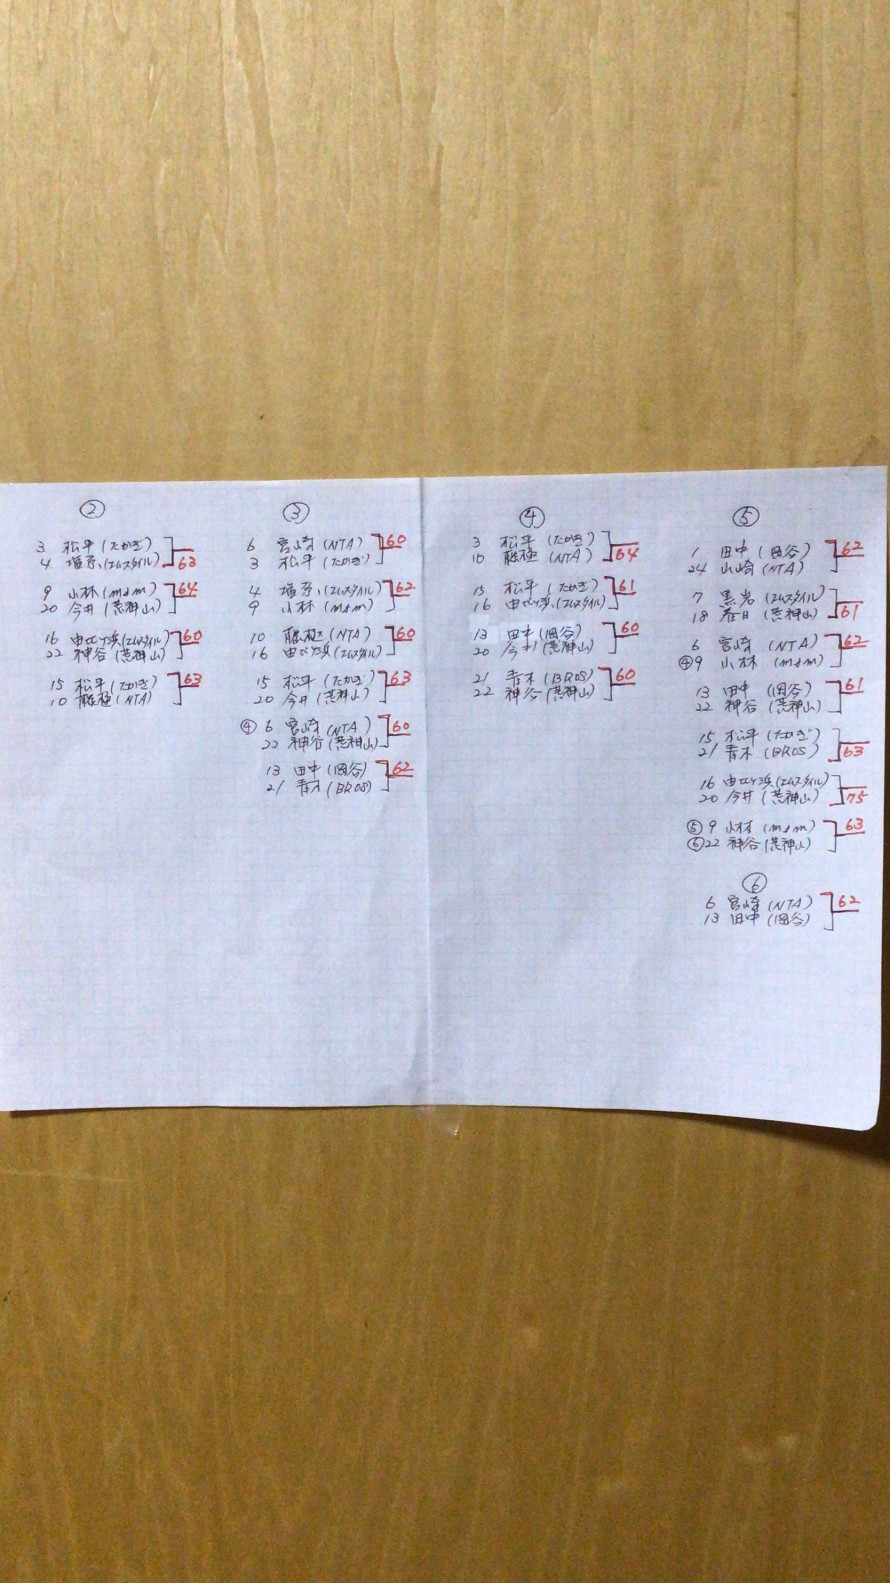 ②
3 松平 (たかぎ)
4 塩原 (エムスタイル) 63
9 小林 (m&m) 64
20 今井 (荒神山)
16 由比ヶ浜 (エムスタイル) 60
22 神谷 (荒神山)
15 松平 (たかぎ) 63
10 藤極 (NTA)
③
6 宮崎 (NTA) 60
3 松平 (たかぎ)
4 塩原 (エムスタイル) 62
9 小林 (m&m)
10 藤極 (NTA) 60
16 由比ヶ浜 (エムスタイル)
15 松平 (たかぎ) 63
20 今井 (荒神山)
④ 6 宮崎 (NTA) 60
22 神谷 (荒神山)
13 田中 (岡谷) 62
21 青木 (BROS)
④
3 松平 (たかぎ)
10 藤極 (NTA) 64
15 松平 (たかぎ) 61
16 由比ヶ浜 (エムスタイル)
13 田中 (岡谷) 60
20 今井 (荒神山)
21 青木 (BROS) 60
22 神谷 (荒神山)
⑤
1 田中 (岡谷) 62
24 山崎 (NTA)
7 黒岩 (エムスタイル)
18 春日 (荒神山) 61
6 宮崎 (NTA) 62
④9 小林 (m&m)
13 田中 (岡谷) 61
22 神谷 (荒神山)
15 松平 (たかぎ)
21 青木 (BROS) 63
16 由比ヶ浜 (エムスタイル)
20 今井 (荒神山) 75
⑤ 9 小林 (m&m) 63
⑥22 神谷 (荒神山)
⑥
6 宮崎 (NTA) 62
13 田中 (岡谷)